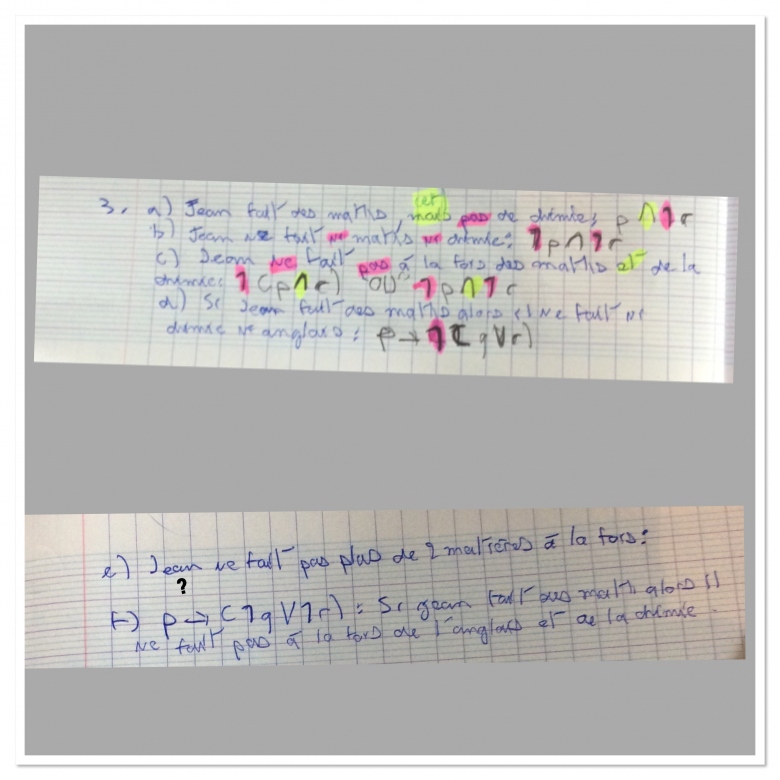 3. a) Jean fait des maths, mais (et) pas de chimie: p ∧ ¬r
b) Jean ne fait ne maths ne chimie: ¬p ∧ ¬r
c) Jean ne fait pas à la fois des maths et de la
chimie: ¬(p ∧ r) "OU" ¬p ∧ ¬r
d) Si Jean fait des maths alors il ne fait ne
chimie ne anglais: p → ¬(q ∨ r)
e) Jean ne fait pas plus de 2 matières à la fois:
?
f) p → (¬q ∨ ¬r): Si jean fait des math alors il
ne fait pas à la fois de l'anglais et de la chimie.